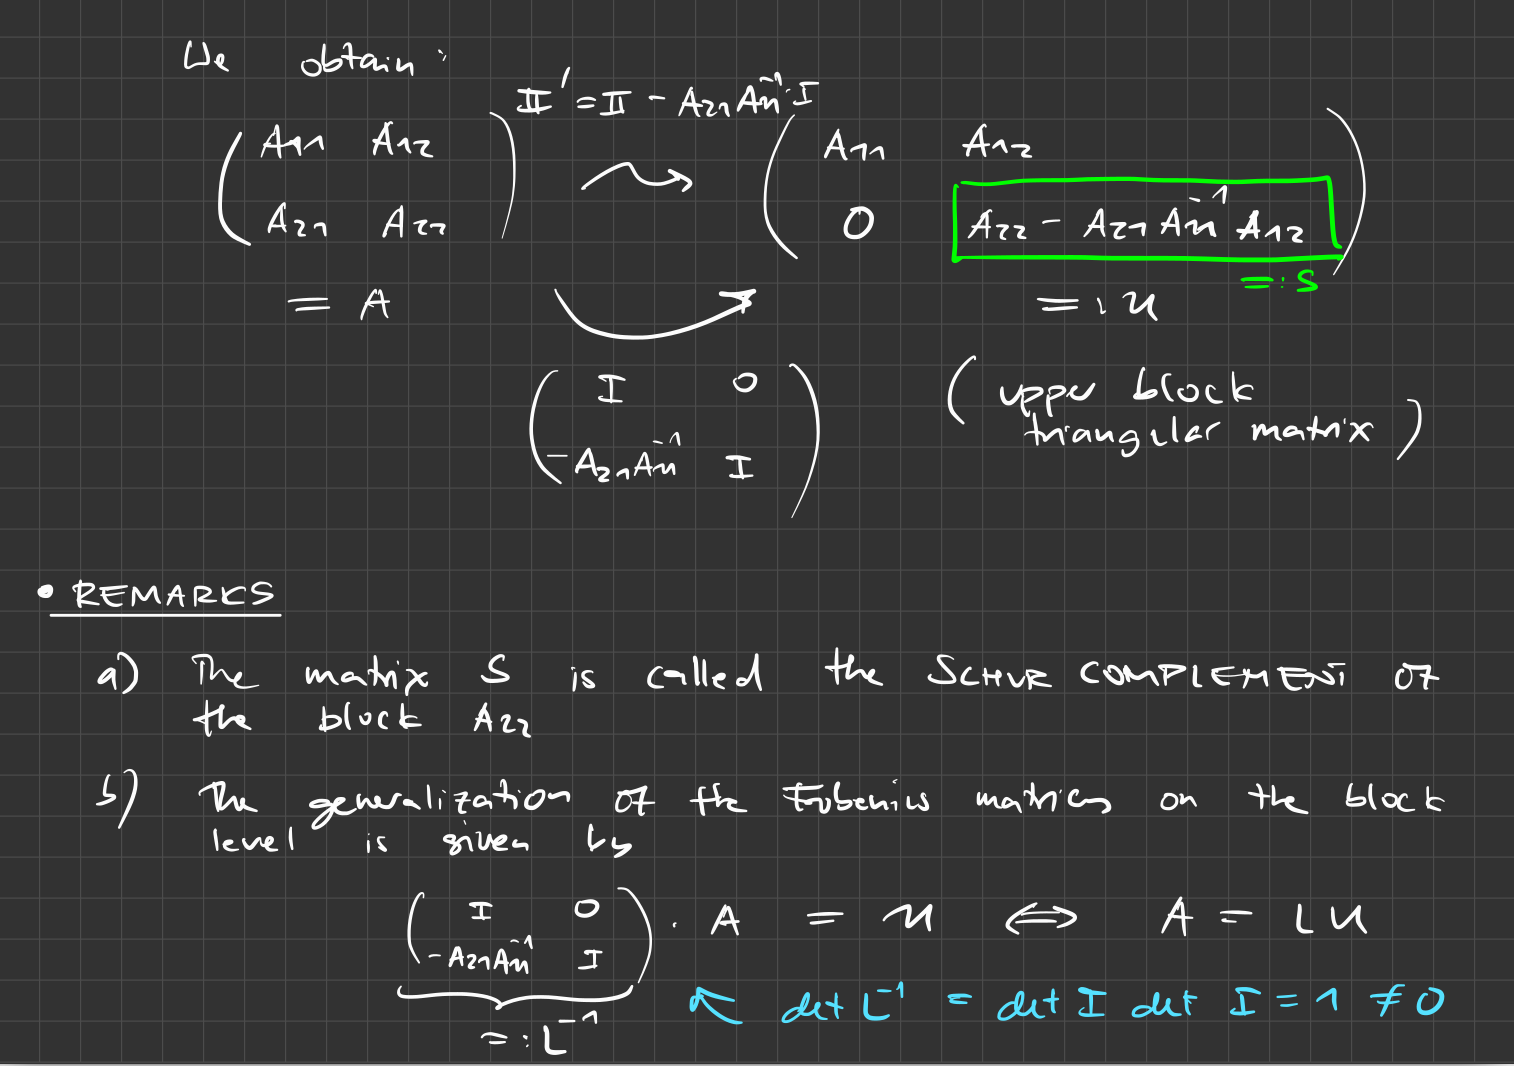 We obtain:
II' = II - A₂₁ A₁₁⁻¹ · I
( A₁₁ A₁₂ ) ( A₁₁ A₁₂ )
( A₂₁ A₂₂ ) ( 0 A₂₂ - A₂₁ A₁₁⁻¹ A₁₂ )
=: S
= A =: U
( I 0 )
( -A₂₁ A₁₁⁻¹ I )
( upper block
triangular matrix )
• REMARKS
a) The matrix S is called the SCHUR COMPLEMENT OF
the block A₂₂
b) The generalization of the Frobenius matrices on the block
level is given by
( I 0 )
( -A₂₁ A₁₁⁻¹ I ) · A = U ⟺ A = LU
=: L⁻¹
← det L⁻¹ = det I det I = 1 ≠ 0